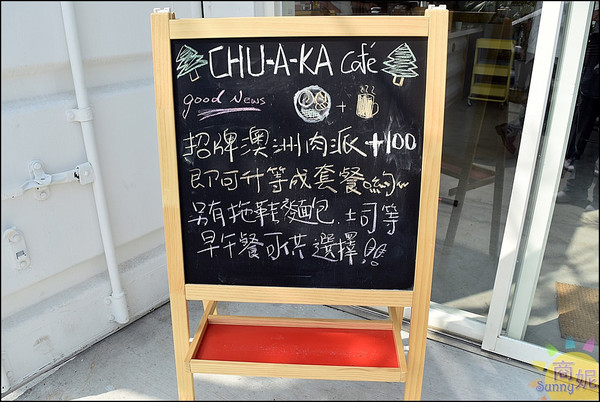 CHU-A-KA Café
good News
+
招牌澳洲肉派+100
即可升等成套餐喲~
另有拖鞋麵包.吐司等
早午餐可供選擇!!
商妮
Sunny